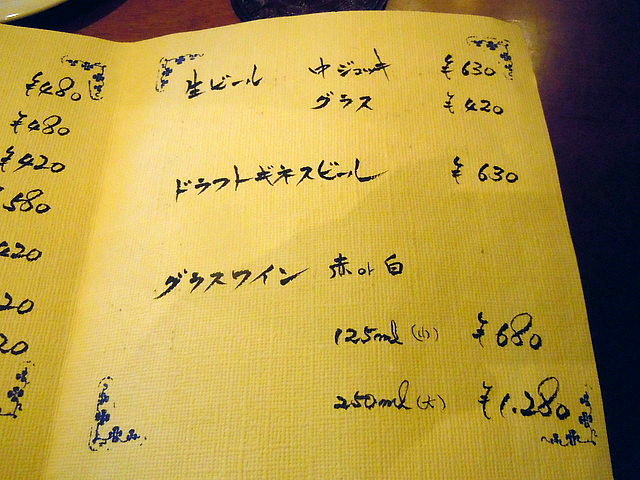 ¥480
¥480
¥420
580
420
20
20
生ビール 中ジョッキ ¥630
グラス ¥420
ドラフトギネスビール ¥630
グラスワイン 赤or白
125ml(小) ¥680
250ml(大) ¥1.280